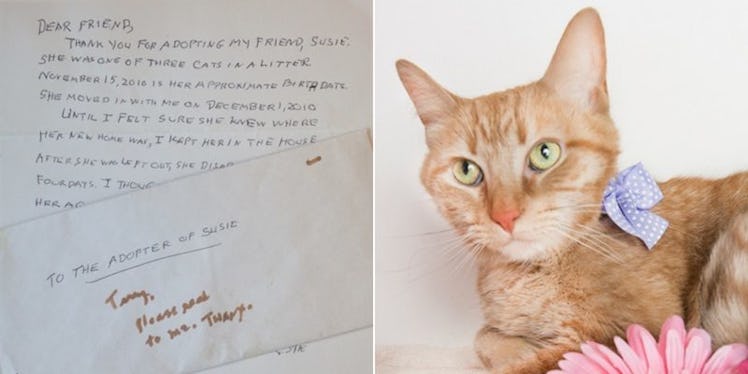 DEAR FRIEND,
THANK YOU FOR ADOPTING MY FRIEND, SUSIE.
SHE WAS ONE OF THREE CATS IN A LITTER
NOVEMBER 15, 2010 IS HER APPROXIMATE BIRTHDATE
SHE MOVED IN WITH ME ON DECEMBER 1, 2010
UNTIL I FELT SURE SHE KNEW WHERE
HER NEW HOME WAS, I KEPT HER IN THE HOUSE
AFTER SHE WAS LEFT OUT, SHE
FOUR DAYS. I
HER
TO THE ADOPTER OF SUSIE
Please read
to me.